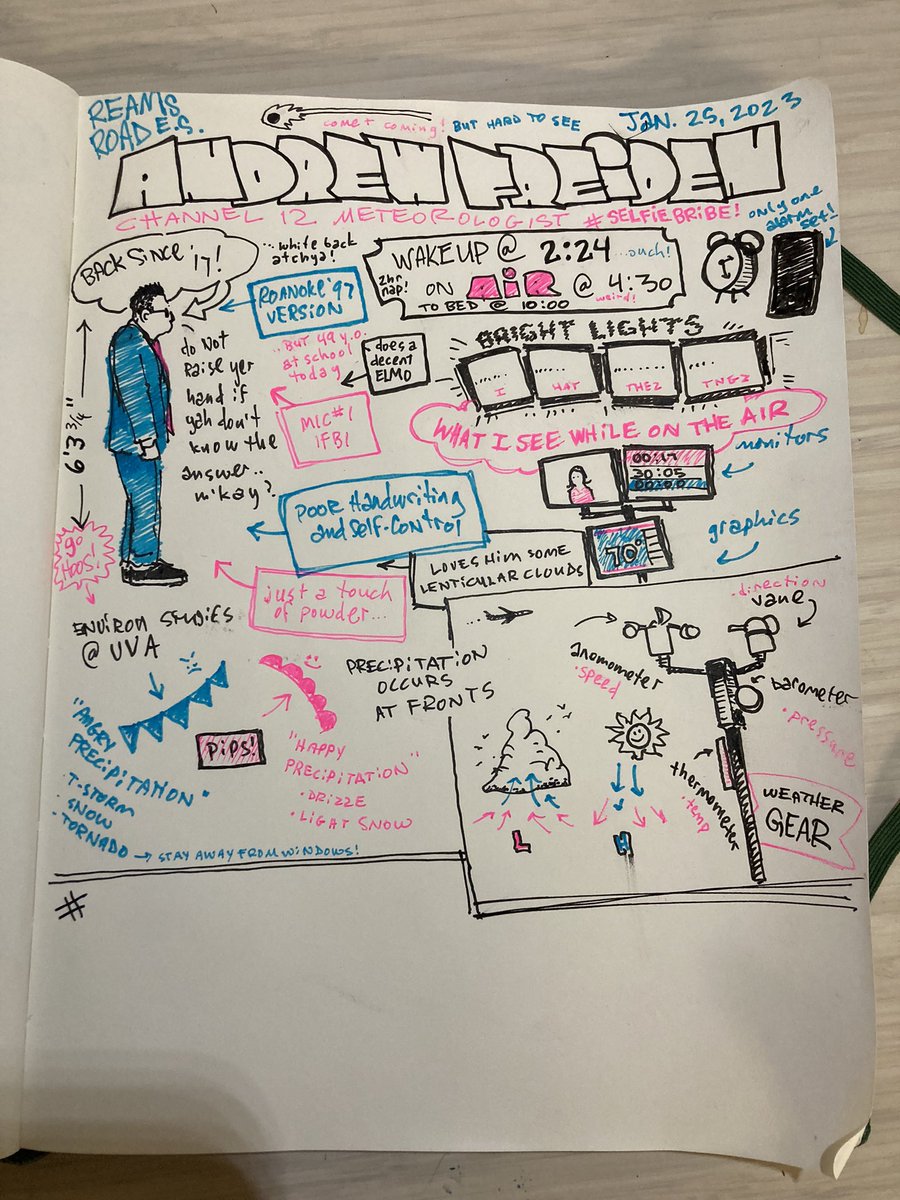 REAMS
ROAD E.S.
comet coming! BUT HARD TO SEE
JAN. 25, 2023
ANDREW FREIDEN
CHANNEL 12 METEOROLOGIST #SELFIEBRIBE!
only one
alarm
set!
BACK SINCE '17!
...white back
atchya!
ROANOKE '97
VERSION
WAKEUP @ 2:24 ...ouch!
2hr
nap!
ON AIR @ 4:30
weird!
TO BED @ 10:00
BRIGHT LIGHTS
...BUT 49 y.o.
at school
today
does a
decent
ELMO
I HAT THEZ TNGZ
WHAT I SEE WHILE ON THE AIR
6'3 3/4"
do NOT
Raise yer
hand if
yah don't
know the
answer..
m'kay?
MIC #1
IFB1
monitors
00:17
30:05
00:00
POOR Handwriting
and Self-Control
graphics
70°
LOVES HIM SOME
LENTICULAR CLOUDS
go
HOOS!
just a touch
of powder...
ENVIRON STUDIES
@ UVA
PRECIPITATION
OCCURS
AT FRONTS
·direction
vane
anomometer
·speed
barometer
·pressure
"ANGRY
PRECIPITATION"
·T-STORM
·SNOW
·TORNADO → STAY AWAY FROM WINDOWS!
PIPS!
"HAPPY
PRECIPITATION"
·DRIZZE
·LIGAT SNOW
thermometer
·temp
WEATHER
GEAR
L
H
#